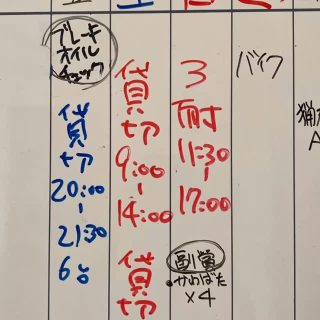 ブレーキ
オイル
チェック
貸切
20:00
~
21:30
6台
貸切
9:00
~
14:00
貸切
3
耐
11:30
~
17:00
副賞
・かわばた
×4
バイク